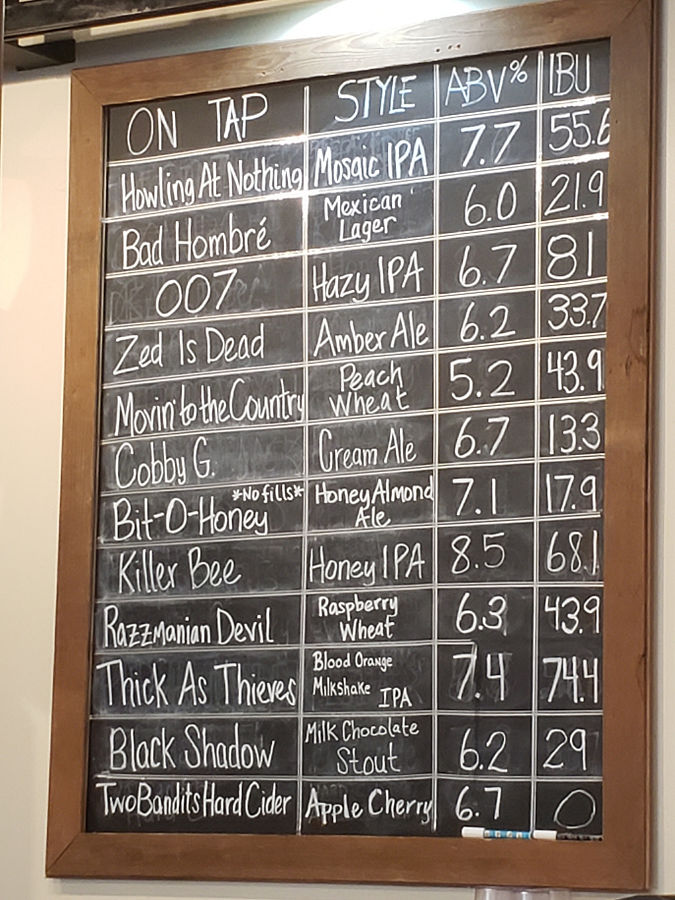 ON TAP STYLE ABV% IBU
Howling At Nothing Mosaic IPA 7.7 55.6
Bad Hombré Mexican Lager 6.0 21.9
007 Hazy IPA 6.7 81
Zed Is Dead Amber Ale 6.2 33.7
Movin' to the Country Peach Wheat 5.2 43.9
Cobby G. Cream Ale 6.7 13.3
Bit-O-Honey *No fills* Honey Almond Ale 7.1 17.9
Killer Bee Honey IPA 8.5 68.1
Razzmanian Devil Raspberry Wheat 6.3 43.9
Thick As Thieves Blood Orange Milkshake IPA 7.4 74.4
Black Shadow Milk Chocolate Stout 6.2 29
Two Bandits Hard Cider Apple Cherry 6.7 0